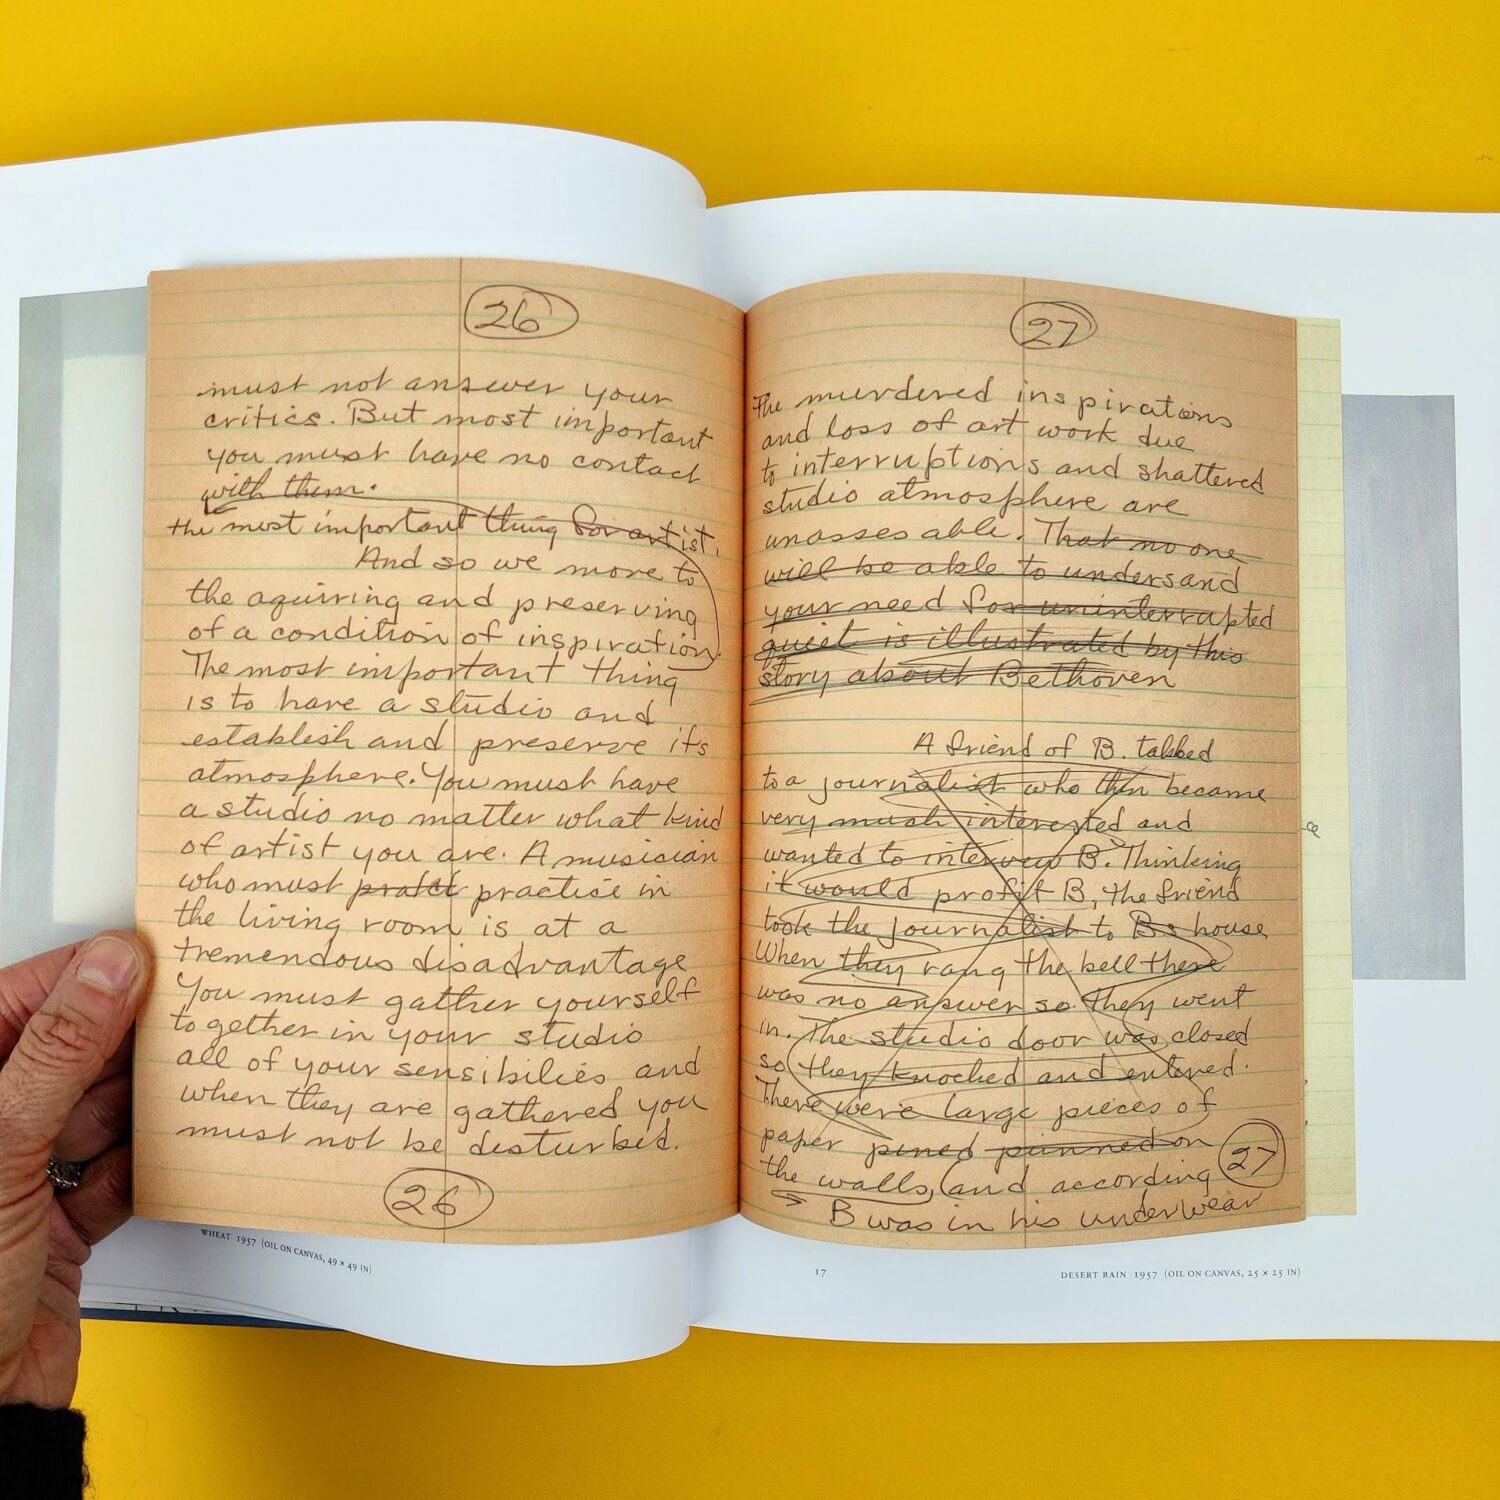 26
must not answer your
critics. But most important
you must have no contact
with them.
the most important thing for artist.
And so we move to
the aquiring and preserving
of a condition of inspiration.
The most important thing
is to have a studio and
establish and preserve its
atmosphere. You must have
a studio no matter what kind
of artist you are. A musician
who must practise in
the living room is at a
tremendous disadvantage
You must gather yourself
together in your studio
all of your sensibilies and
when they are gathered you
must not be disturbed.
26
WHEAT 1957 (OIL ON CANVAS, 49 × 49 IN)
27
The murdered inspirations
and loss of art work due
to interruptions and shattered
studio atmosphere are
unassesable. That no one
will be able to undersand
your need for uninterrupted
quiet is illustrated by this
story about Bethoven
A friend of B. talked
to a journalist who then became
very much interested and
wanted to interview B. Thinking
it would profit B, the friend
took the journalist to Bs house
When they rang the bell there
was no answer so they went
in. The studio door was closed
so they knocked and entered.
There were large pieces of
paper pined pinned on
the walls, and according
27
B was in his underwear
17
DESERT RAIN 1957 (OIL ON CANVAS, 25 × 25 IN)